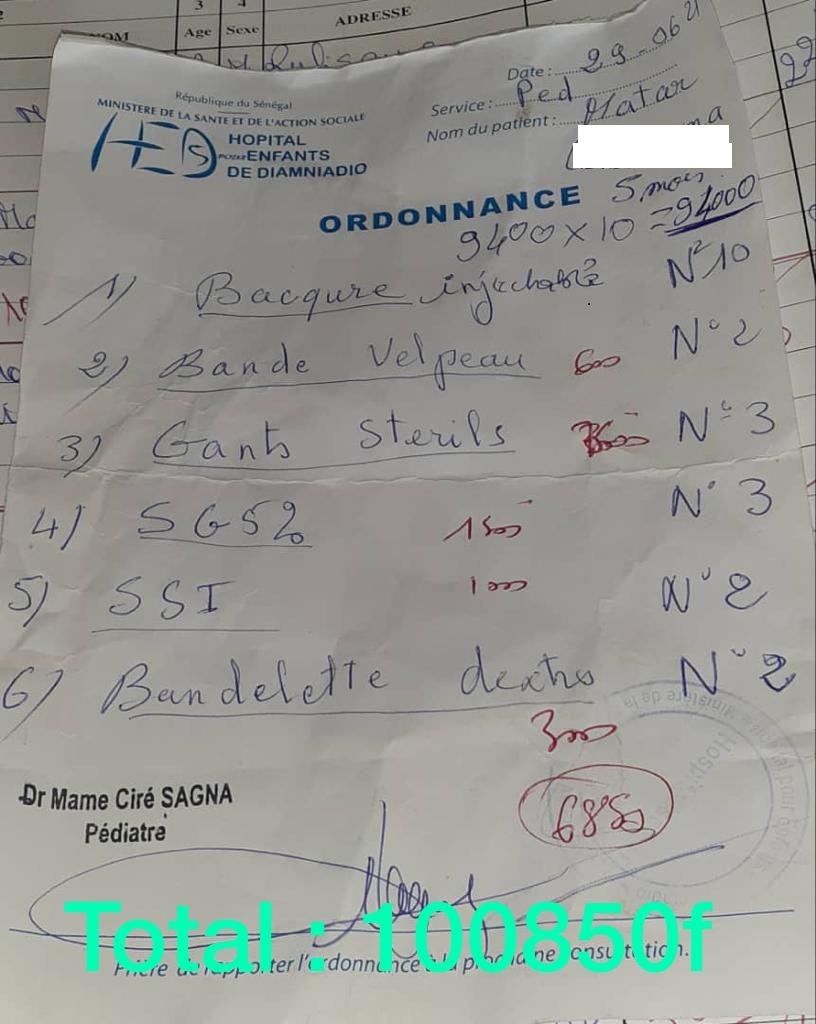 3 4
NOM Age Sexe ADRESSE
République du Sénégal
MINISTERE DE LA SANTE ET DE L'ACTION SOCIALE
HOPITAL
POUR ENFANTS
DE DIAMNIADIO
Date : 29-06 21
Service : Ped
Nom du patient : Matar
ORDONNANCE 5 mois
9400 x 10 = 94000
1) Bacqure injectable N° 10
2) Bande Velpeau 600 N° 2
3) Gants Sterils N° 3
4) SG5% 1500 N° 3
5) SSI 1000 N° 2
6) Bandelette dextro N° 2
3000
6850
Dr Mame Ciré SAGNA
Pédiatre
Total : 100850f
Prière de rapporter l'ordonnance à la prochaine consultation.